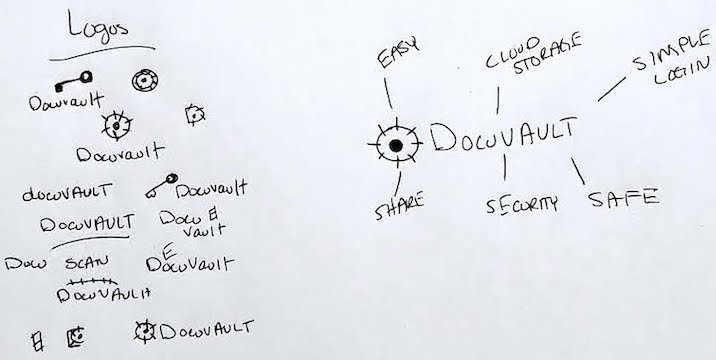 Logos
Docuvault
Docuvault
docuVAULT
Docuvault
DocuVAULT
Docu
vault
Docu SCAN
E
DocuVault
DocuVAULt
DocuVAULT
EASY
CLOUD
STORAGE
SIMPLE
LOGIN
DocuVAULT
SHARE
SECURITY
SAFE